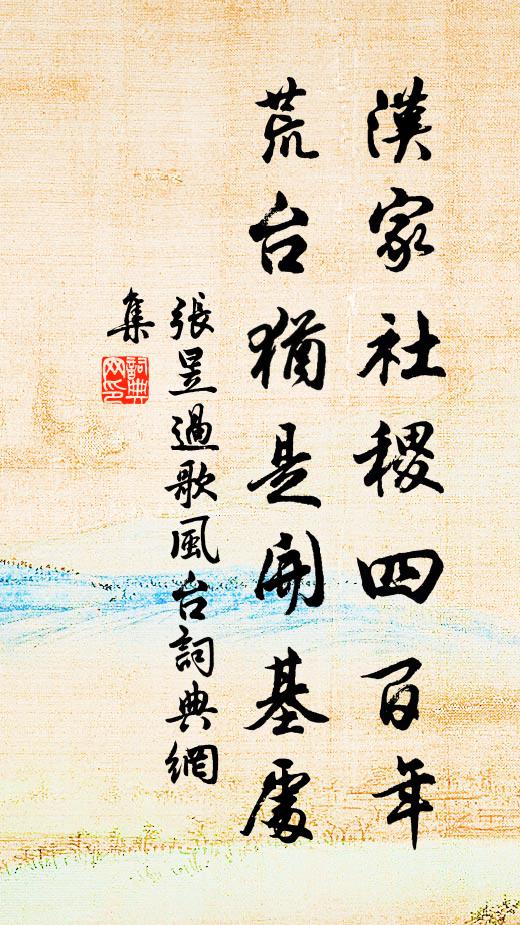 漢家社稷四百年
荒台猶是開基處
張昱過歌風台詞典網
集
詞典
網印